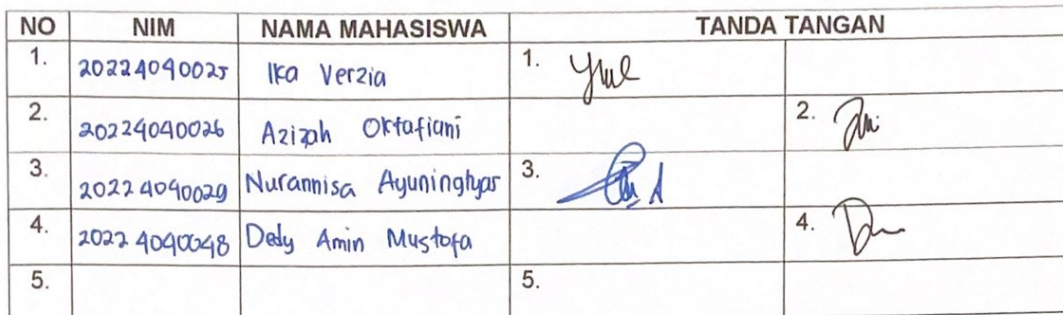 NO NIM NAMA MAHASISWA TANDA TANGAN
1. 20224040025 Ika Verzia 1.
2. 20224040026 Azizah Oktafiani 2.
3. 20224040029 Nurannisa Ayuningtyas 3.
4. 20224040048 Dedy Amin Mustofa 4.
5. 5.